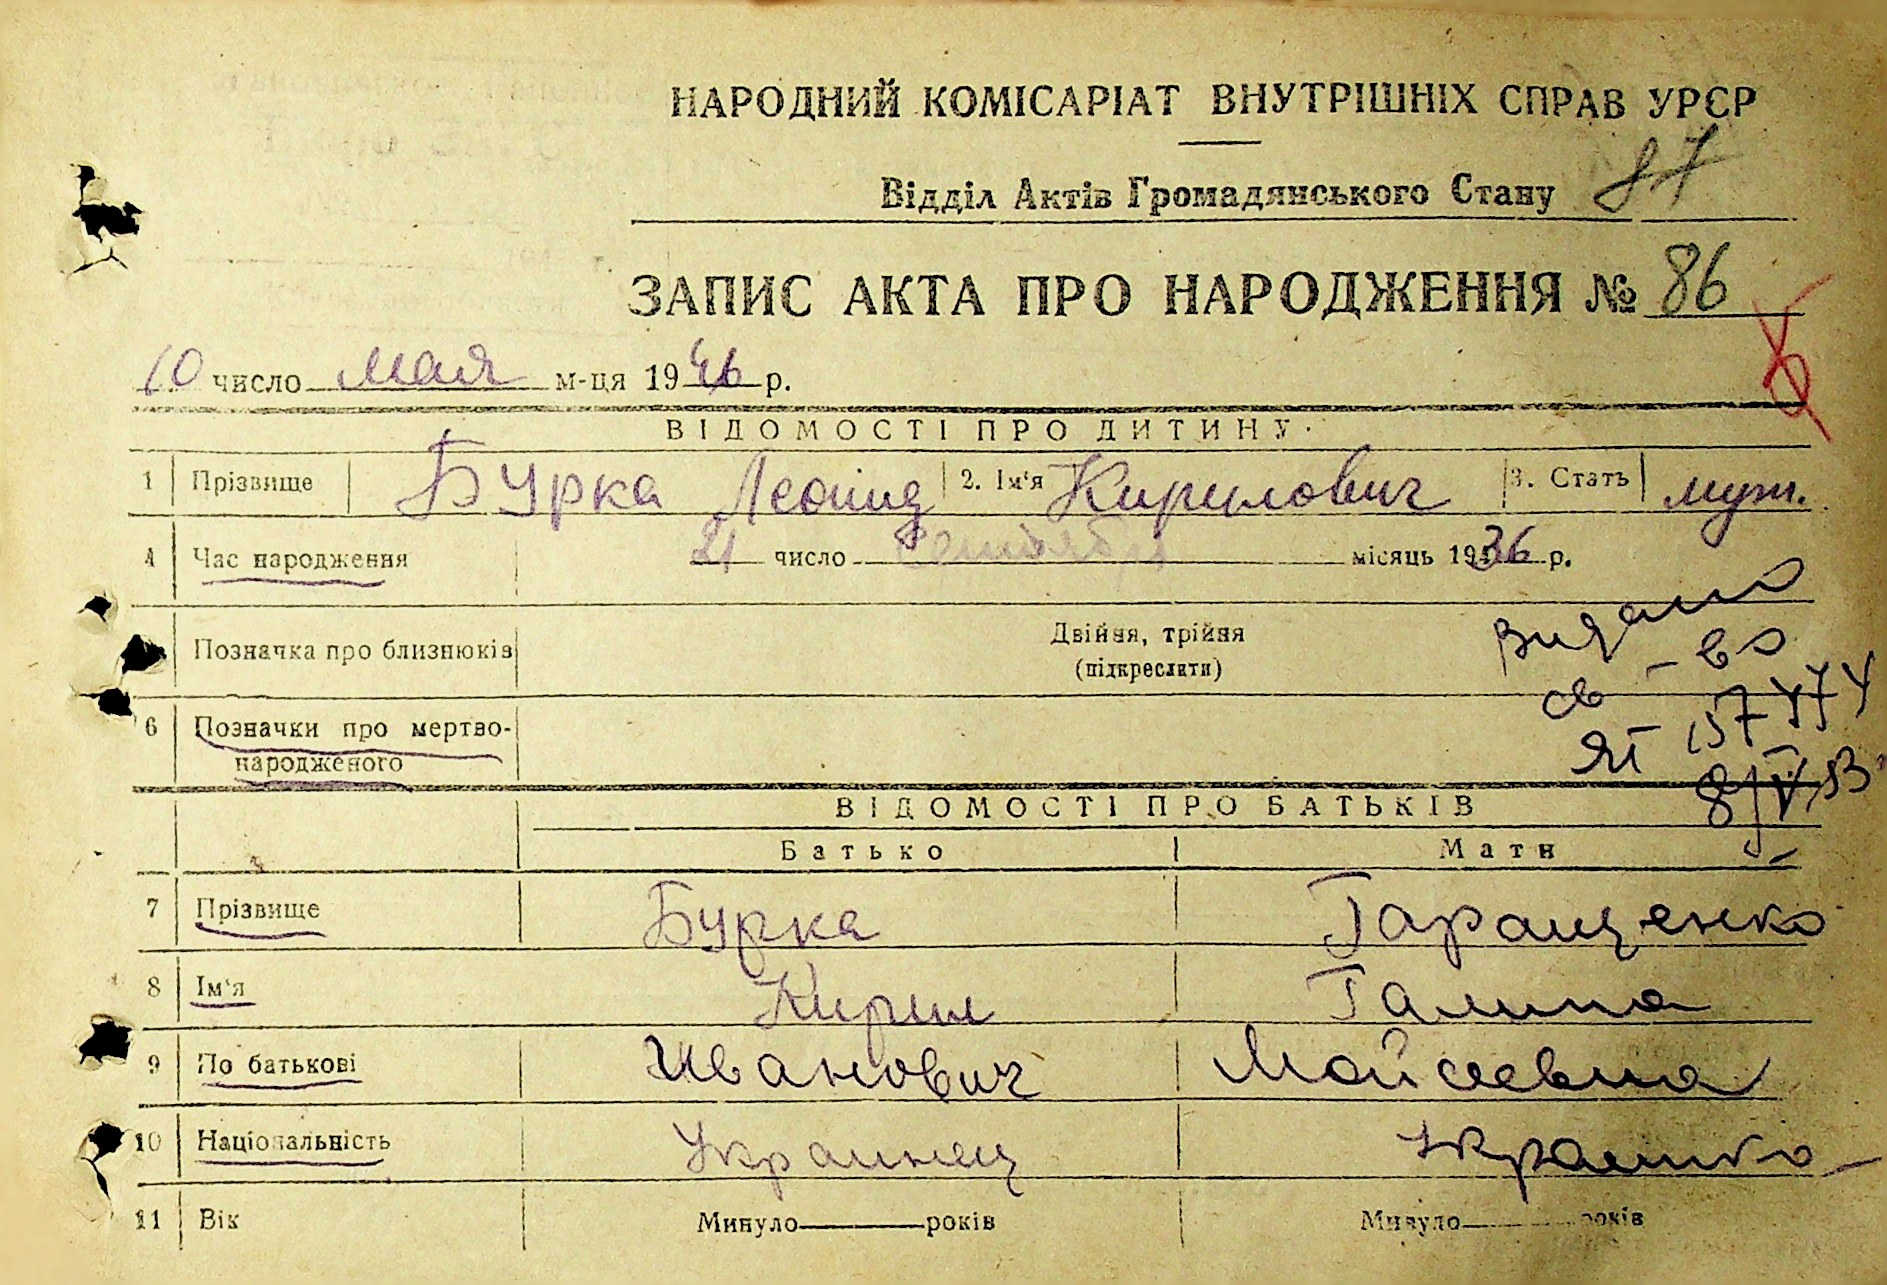 НАРОДНИЙ КОМІСАРІАТ ВНУТРІШНІХ СПРАВ УРСР
Відділ Актів Громадянського Стану 87
ЗАПИС АКТА ПРО НАРОДЖЕННЯ № 86
10 число мая м-ця 1946 р.
ВІДОМОСТІ ПРО ДИТИНУ
1 Прізвище Бурка Леонид 2. Ім'я Кирилович 3. Стать муж.
4 Час народження 21 число Сентября місяць 1936 р.
Позначка про близнюків Двійня, трійня
(підкреслити)
видано
св-во
6 Позначки про мертво-
народженого
ЯТ
ВІДОМОСТІ ПРО БАТЬКІВ
Батько Мати
7 Прізвище Бурка Гаращенко
8 Ім'я Кирил Галина
9 По батькові Иванович Мойсеевна
10 Національність Украинец Украинка
11 Вік Минуло років Минуло років